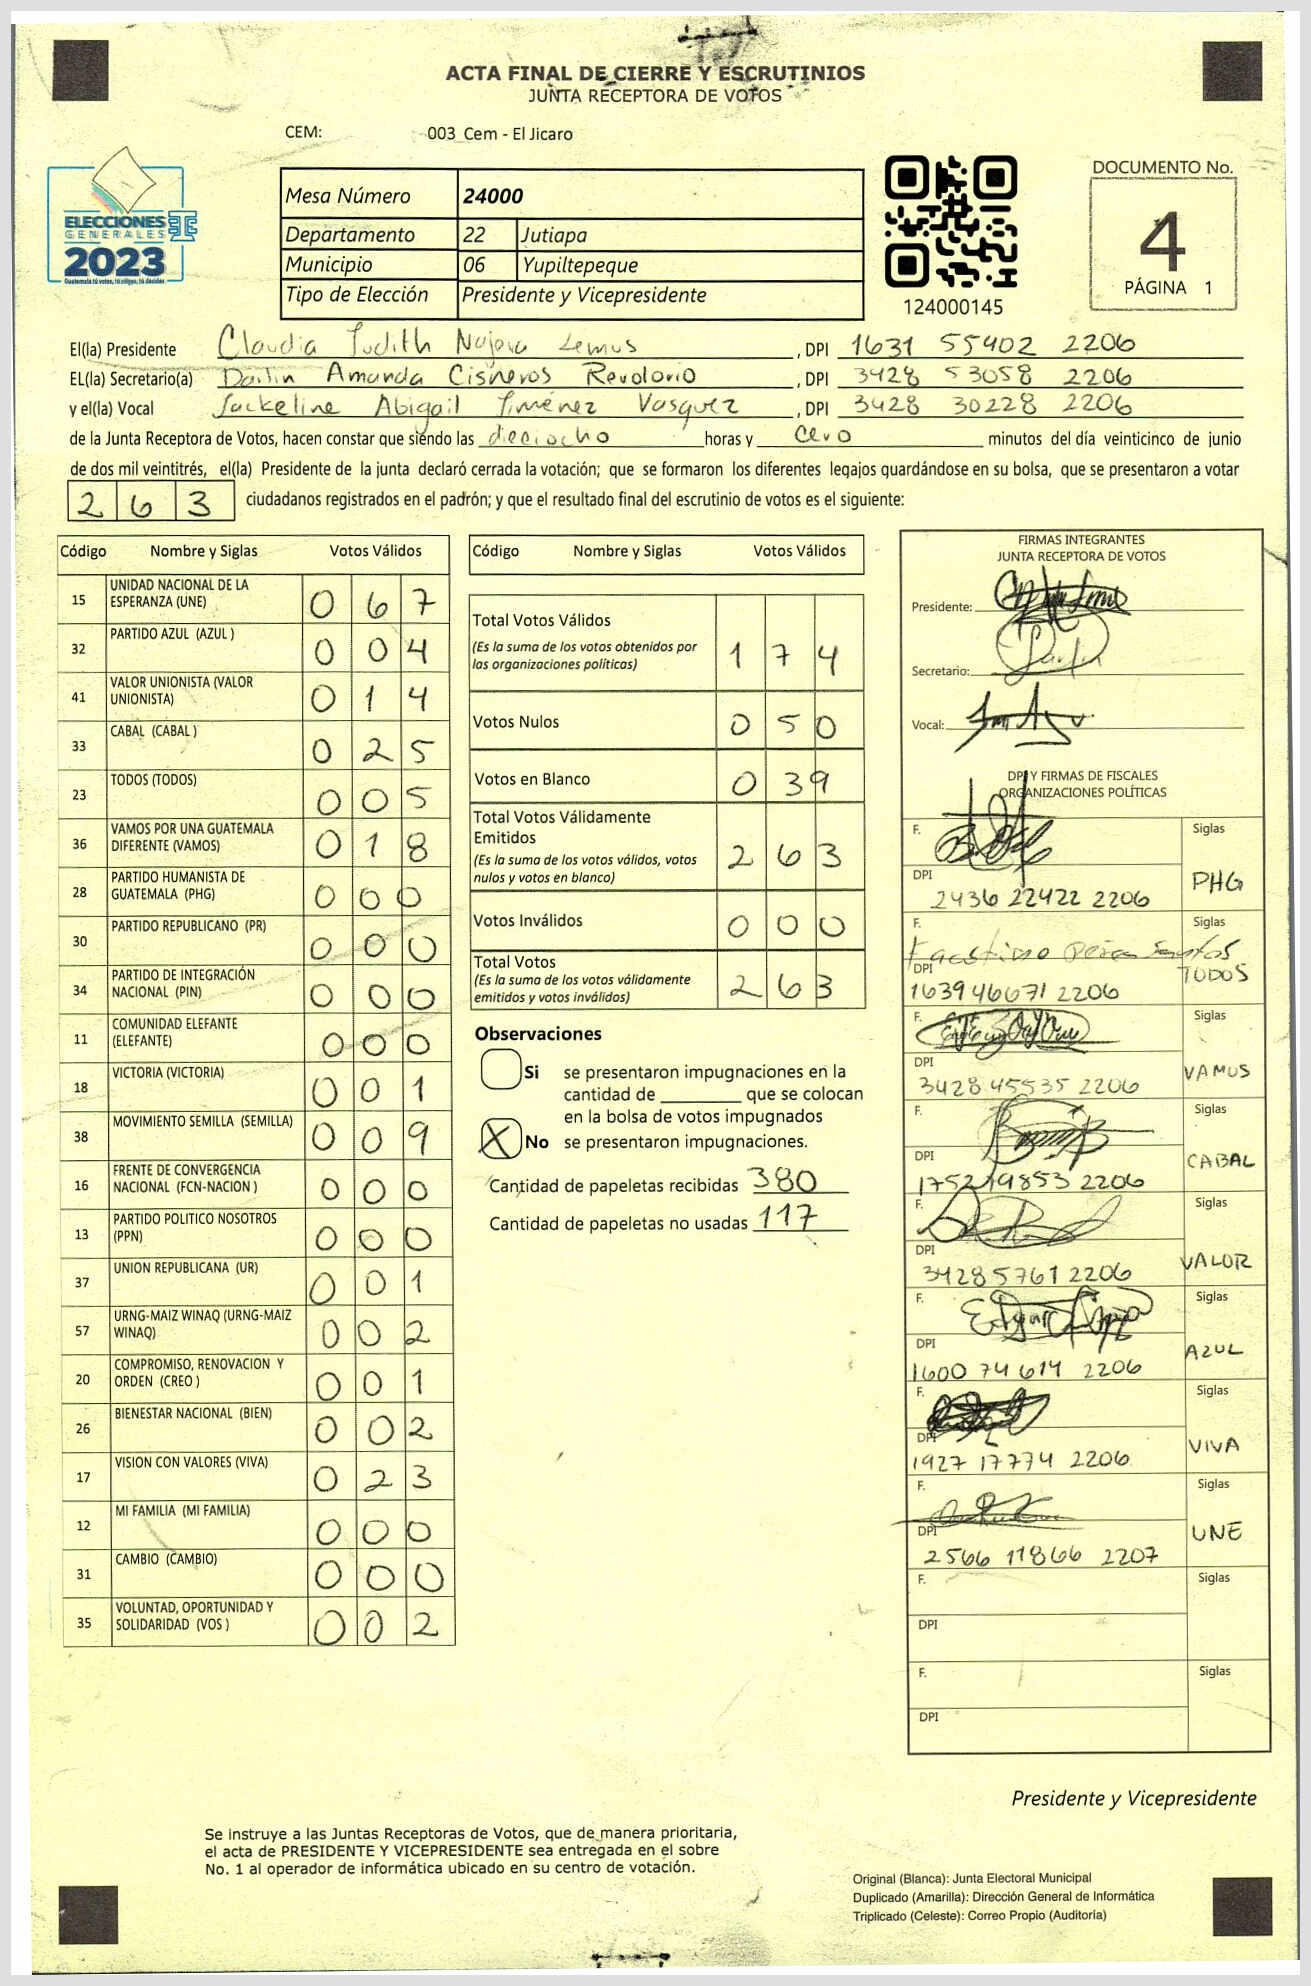 ACTA FINAL DE CIERRE Y ESCRUTINIOS
JUNTA RECEPTORA DE VOTOS
CEM: 003 Cem - El Jicaro
DOCUMENTO No.
4
PÁGINA 1
ELECCIONES
GENERALES
2023
Guatemala tú votas, tú eliges, tú decides
Mesa Número 24000
Departamento 22 Jutiapa
Municipio 06 Yupiltepeque
Tipo de Elección Presidente y Vicepresidente
124000145
El(la) Presidente Claudia Judith Najera Lemus , DPI 1631 55402 2206
EL(la) Secretario(a) Darlin Amanda Cisneros Revolorio , DPI 3428 53058 2206
y el(la) Vocal Jackeline Abigail Jiménez Vasquez , DPI 3428 30228 2206
de la Junta Receptora de Votos, hacen constar que siendo las dieciocho horas y cero minutos del día veinticinco de junio
de dos mil veintitrés, el(la) Presidente de la junta declaró cerrada la votación; que se formaron los diferentes legajos guardándose en su bolsa, que se presentaron a votar
263 ciudadanos registrados en el padrón; y que el resultado final del escrutinio de votos es el siguiente:
Código Nombre y Siglas Votos Válidos
15 UNIDAD NACIONAL DE LA ESPERANZA (UNE) 067
32 PARTIDO AZUL (AZUL ) 004
41 VALOR UNIONISTA (VALOR UNIONISTA) 014
33 CABAL (CABAL ) 025
23 TODOS (TODOS) 005
36 VAMOS POR UNA GUATEMALA DIFERENTE (VAMOS) 018
28 PARTIDO HUMANISTA DE GUATEMALA (PHG) 000
30 PARTIDO REPUBLICANO (PR) 000
34 PARTIDO DE INTEGRACIÓN NACIONAL (PIN) 000
11 COMUNIDAD ELEFANTE (ELEFANTE) 000
18 VICTORIA (VICTORIA) 001
38 MOVIMIENTO SEMILLA (SEMILLA) 009
16 FRENTE DE CONVERGENCIA NACIONAL (FCN-NACION ) 000
13 PARTIDO POLITICO NOSOTROS (PPN) 000
37 UNION REPUBLICANA (UR) 001
57 URNG-MAIZ WINAQ (URNG-MAIZ WINAQ) 002
20 COMPROMISO, RENOVACION Y ORDEN (CREO ) 001
26 BIENESTAR NACIONAL (BIEN) 002
17 VISION CON VALORES (VIVA) 023
12 MI FAMILIA (MI FAMILIA) 000
31 CAMBIO (CAMBIO) 000
35 VOLUNTAD, OPORTUNIDAD Y SOLIDARIDAD (VOS ) 002
Código Nombre y Siglas Votos Válidos
Total Votos Válidos 174
(Es la suma de los votos obtenidos por
las organizaciones políticas)
Votos Nulos 050
Votos en Blanco 039
Total Votos Válidamente
Emitidos 263
(Es la suma de los votos válidos, votos
nulos y votos en blanco)
Votos Inválidos 000
Total Votos 263
(Es la suma de los votos válidamente
emitidos y votos inválidos)
Observaciones
Si se presentaron impugnaciones en la
cantidad de ________ que se colocan
en la bolsa de votos impugnados
X No se presentaron impugnaciones.
Cantidad de papeletas recibidas 380
Cantidad de papeletas no usadas 117
FIRMAS INTEGRANTES
JUNTA RECEPTORA DE VOTOS
Presidente:
Secretario:
Vocal:
DPI Y FIRMAS DE FISCALES
ORGANIZACIONES POLÍTICAS
F. Siglas
DPI 2436 22422 2206 PHG
F. Siglas
DPI 1639 46671 2206 TODOS
F. Siglas
DPI 3428 45535 2206 VAMOS
F. Siglas
DPI 1752 19853 2206 CABAL
F. Siglas
DPI 3428 5761 2206 VALOR
F. Siglas
DPI 1600 74 614 2206 AZUL
F. Siglas
DPI 1927 17774 2206 VIVA
F. Siglas
DPI 2566 11866 2207 UNE
F. Siglas
DPI
F. Siglas
DPI
Presidente y Vicepresidente
Se instruye a las Juntas Receptoras de Votos, que de manera prioritaria,
el acta de PRESIDENTE Y VICEPRESIDENTE sea entregada en el sobre
No. 1 al operador de informática ubicado en su centro de votación.
Original (Blanca): Junta Electoral Municipal
Duplicado (Amarilla): Dirección General de Informática
Triplicado (Celeste): Correo Propio (Auditoría)